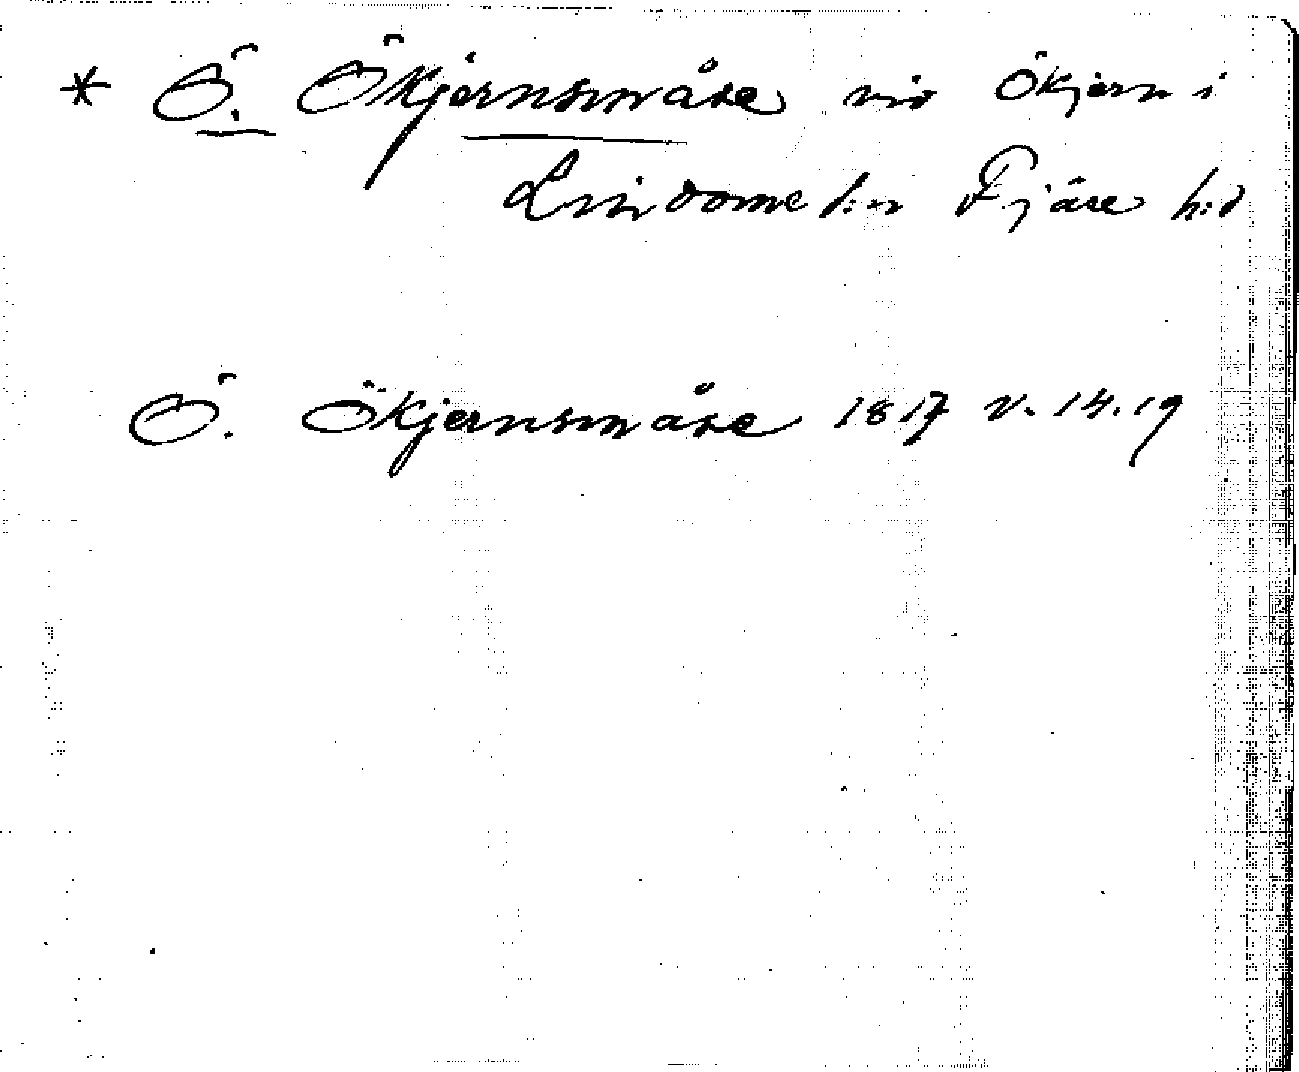 * Ö. Ökjernsmåse vid Ökjern i
Lindome s:n Fjäre h:d
Ö. Ökjernsmåse 1817 v. 14.19